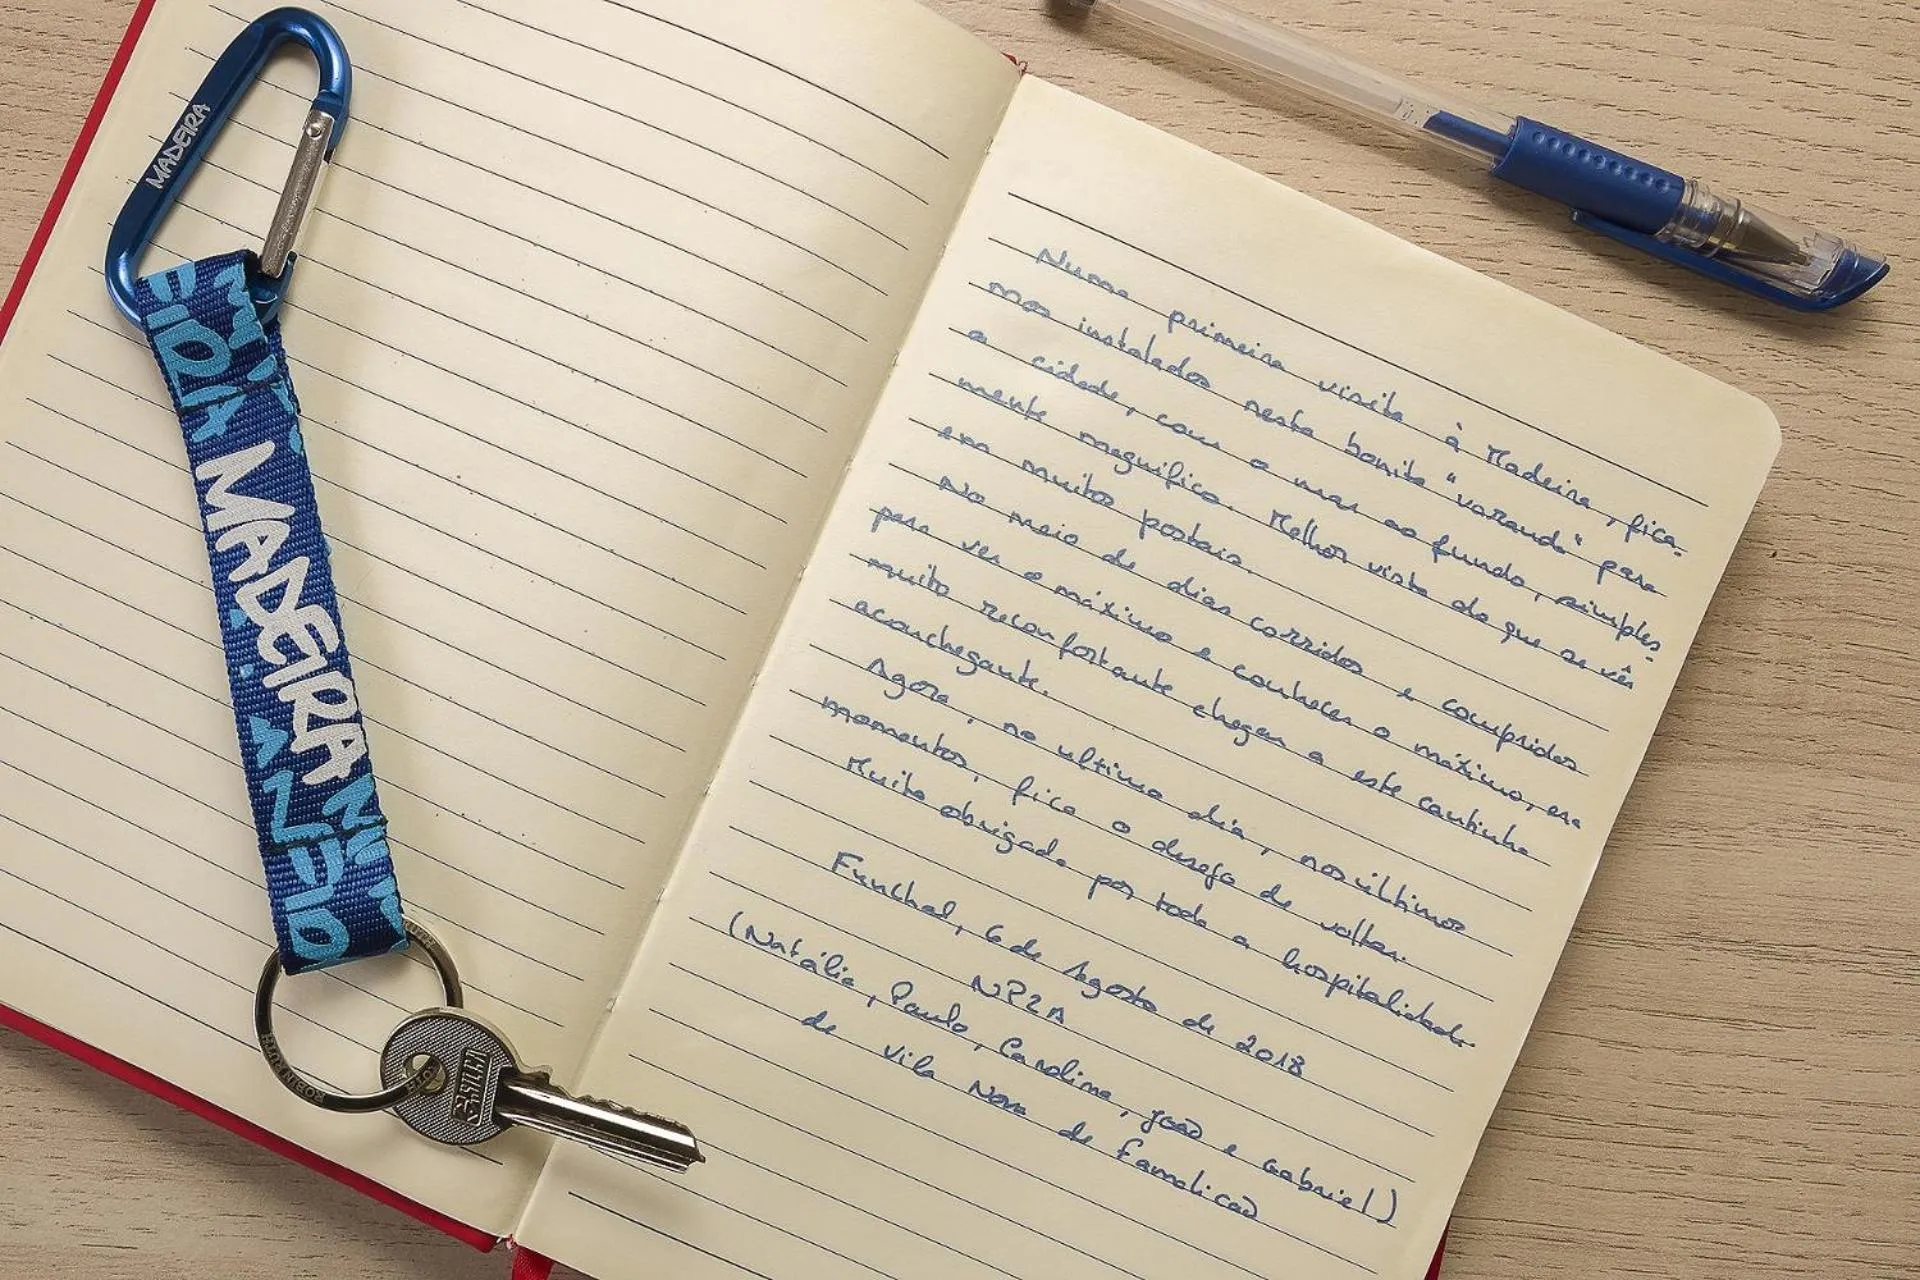 MADEIRA
MADEIRA
Numa primeira visita à Madeira, fica-
mos instalados nesta bonita "varanda" para
a cidade, com o mar ao fundo, simples-
mente magnífico. Melhor vista do que se vê
em muitos postais.
No meio de dias corridos e compridos
para ver o máximo e conhecer o máximo, era
muito reconfortante chegar a este cantinho
aconchegante.
Agora, no ultimo dia, nos últimos
momentos, fica o desejo de voltar.
Muito obrigada por toda a hospitalidade.
Funchal, 6 de Agosto de 2018
NP2A
(Natália, Paulo, Carolina, João e Gabriel)
de Vila Nova de Famalicão
ROBIN RUTH